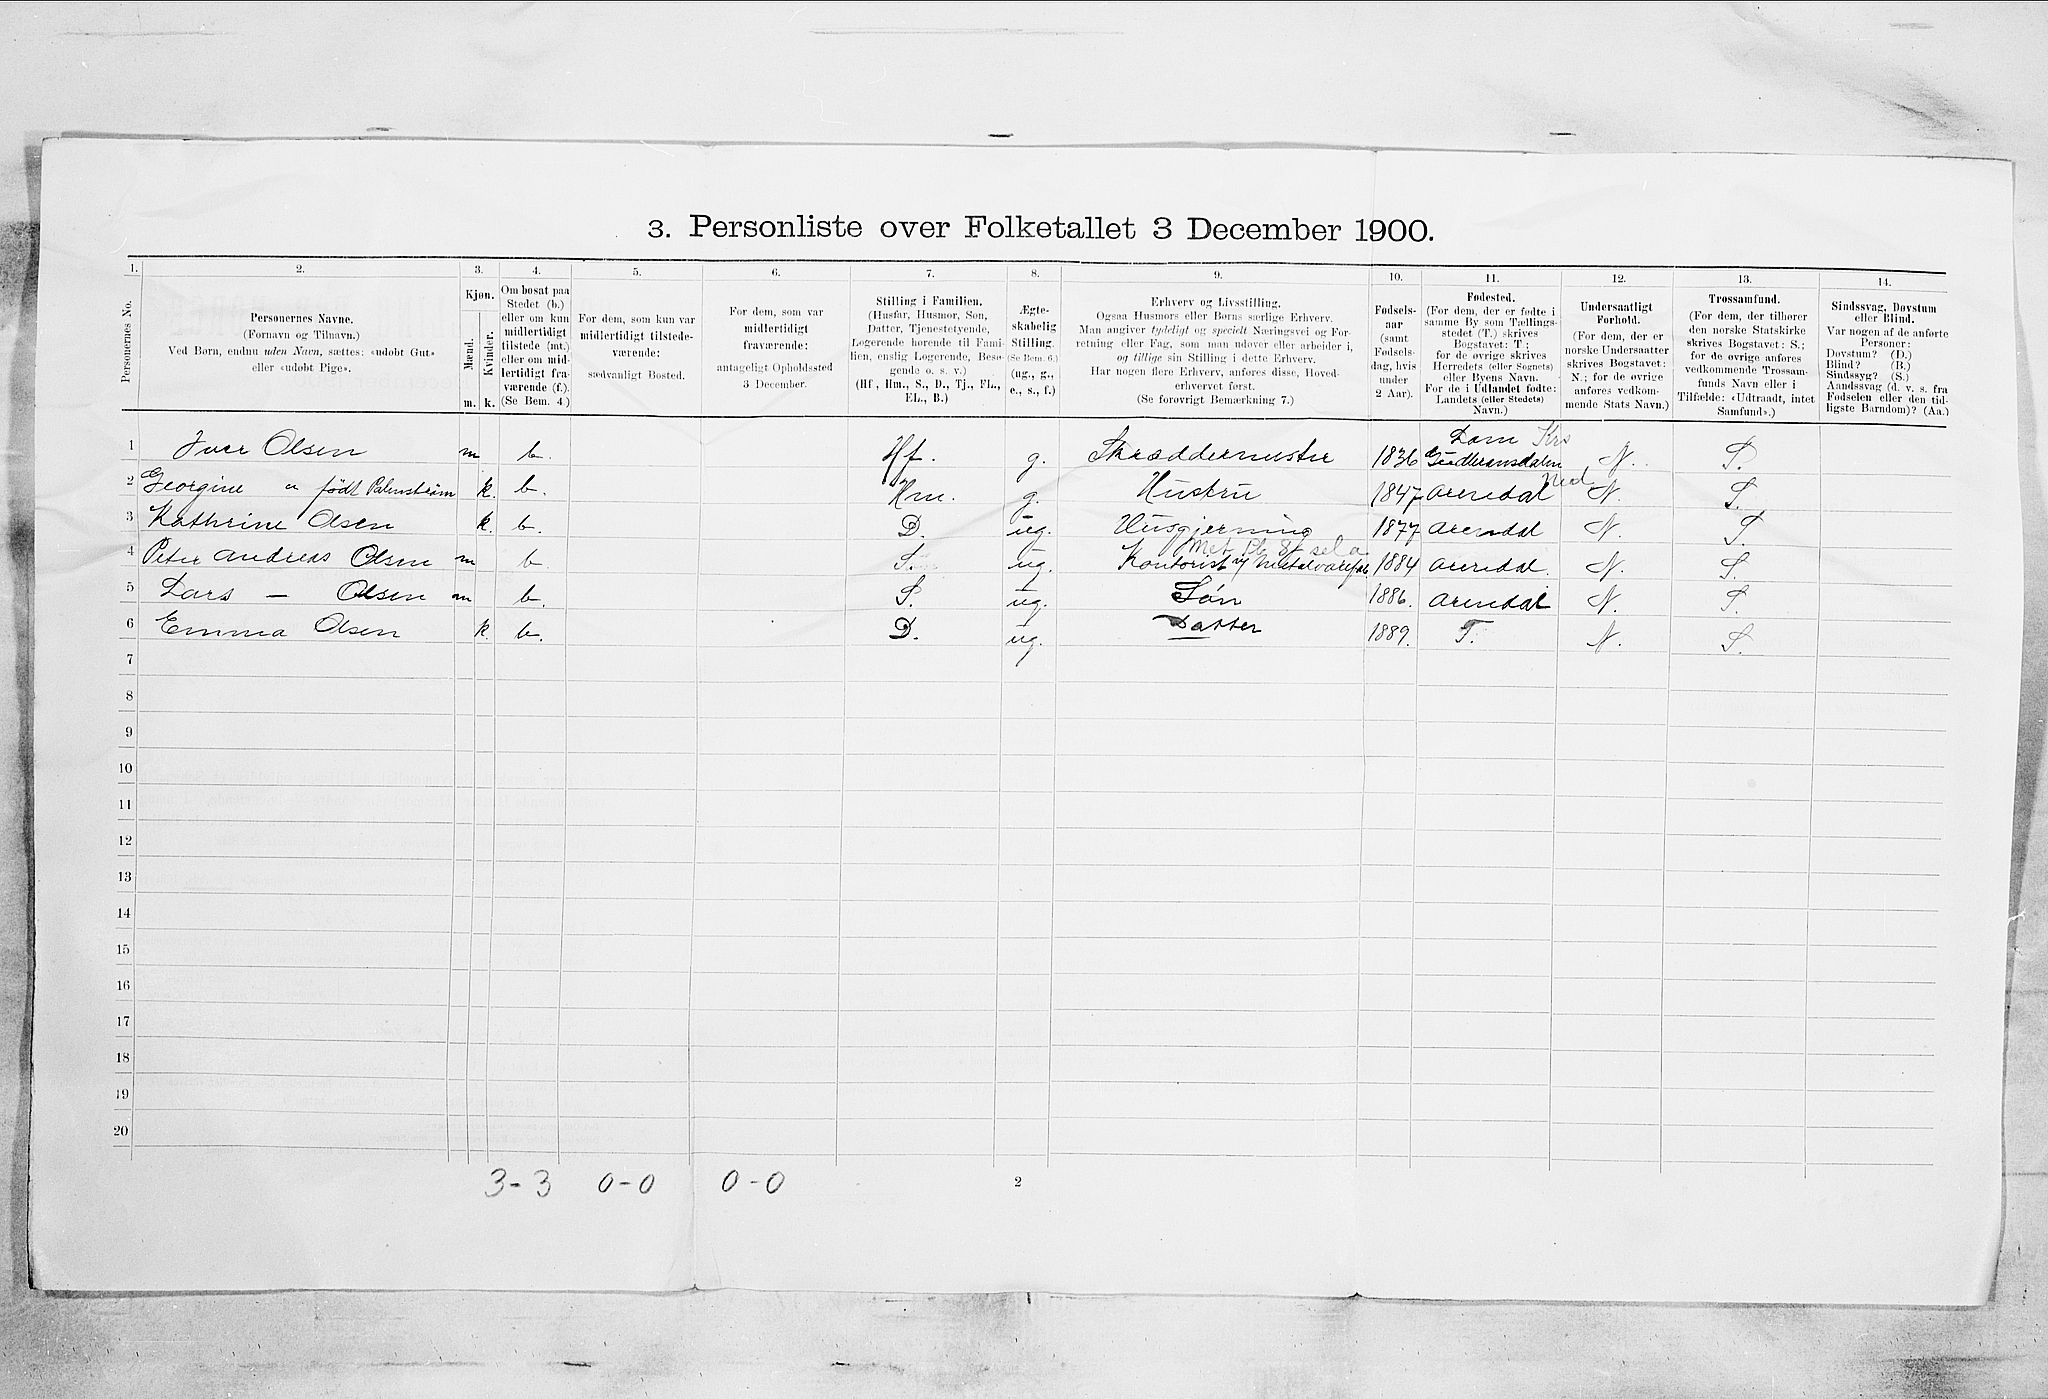 3. Personliste over Folketallet 3 December 1900.
1. 2. 3. 4. 5. 6. 7. 8. 9. 10. 11. 12. 13. 14.
Personernes No.
Personernes Navne.
(Fornavn og Tilnavn.)
Ved Børn, endnu uden Navn, sættes: «udøbt Gut»
eller «udøbt Pige».
Kjøn.
Mænd.
Kvinder.
m. k.
Om bosat paa
Stedet (b.)
eller om kun
midlertidigt
tilstede (mt.)
eller om mid-
lertidigt fra-
værende (f.).
(Se Bem. 4.)
For dem, som kun var
midlertidigt tilstede-
værende:
sædvanligt Bosted.
For dem, som var
midlertidigt
fraværende:
antageligt Opholdssted
3 December.
Stilling i Familien.
(Husfar, Husmor, Søn,
Datter, Tjenestetyende,
Logerende hørende til Fami-
lien, enslig Logerende, Besø-
gende o. s. v.)
(Hf., Hm., S., D., Tj., FL.,
EL., B.)
Ægte-
skabelig
Stilling.
(Se Bem. 6.)
(ug., g.,
e., s., f.)
Erhverv og Livsstilling.
Ogsaa Husmors eller Børns særlige Erhverv.
Man angiver tydeligt og specielt Næringsvei og For-
retning eller Fag, som man udøver eller arbeider i,
og tillige sin Stilling i dette Erhverv.
Har nogen flere Erhverv, anføres disse, Hoved-
erhvervet først.
(Se forøvrigt Bemærkning 7.)
Fødsels-
aar
(samt
Fødsels-
dag, hvis
under
2 Aar).
Fødested.
(For dem, der er fødte i
samme By som Tællings-
stedet (T.) skrives
Bogstavet: T;
for de øvrige skrives
Herredets (eller Sognets)
eller Byens Navn.
For de i Udlandet fødte:
Landets (eller Stedets)
Navn.)
Undersaatligt
Forhold.
(For dem, der er
norske Undersaatter
skrives Bogstavet:
N.; for de øvrige
anføres vedkom-
mende Stats Navn.)
Trossamfund.
(For dem, der tilhører
den norske Statskirke
skrives Bogstavet: S.;
for de øvrige anføres
vedkommende Trossam-
funds Navn eller i
Tilfælde: «Udtraadt, intet
Samfund».)
Sindssvag, Døvstum
eller Blind.
Var nogen af de anførte
Personer:
Døvstum? (D.)
Blind? (B.)
Sindssyg? (S.)
Aandssvag (d. v. s. fra
Fødselen eller den tid-
ligste Barndom)? (Aa.)
1 Iver Olsen m b. Hf. g. Skræddermester 1836 Lom Krs Gudbransdalen N. S.
2 Georgine " født Palmstrøm k. b. Hm. g. Hustru 1847 Arendal Ned N. S.
3 Kathrine Olsen k. b. D. ug. Husgjerning 1877 Arendal N. S.
4 Peter Andreas Olsen m b. S. ug. Kontorist v/ Metalvarefab. 1884 Arendal. N. S.
5 Lars — Olsen m b. S. ug. Søn 1886. Arendal N. S.
6 Emma Olsen k. b. D. ug. Datter 1889. T. N. S.
7
8
9
10
11
12
13
14
15
16
17
18
19
20
3-3 0-0 0-0
2